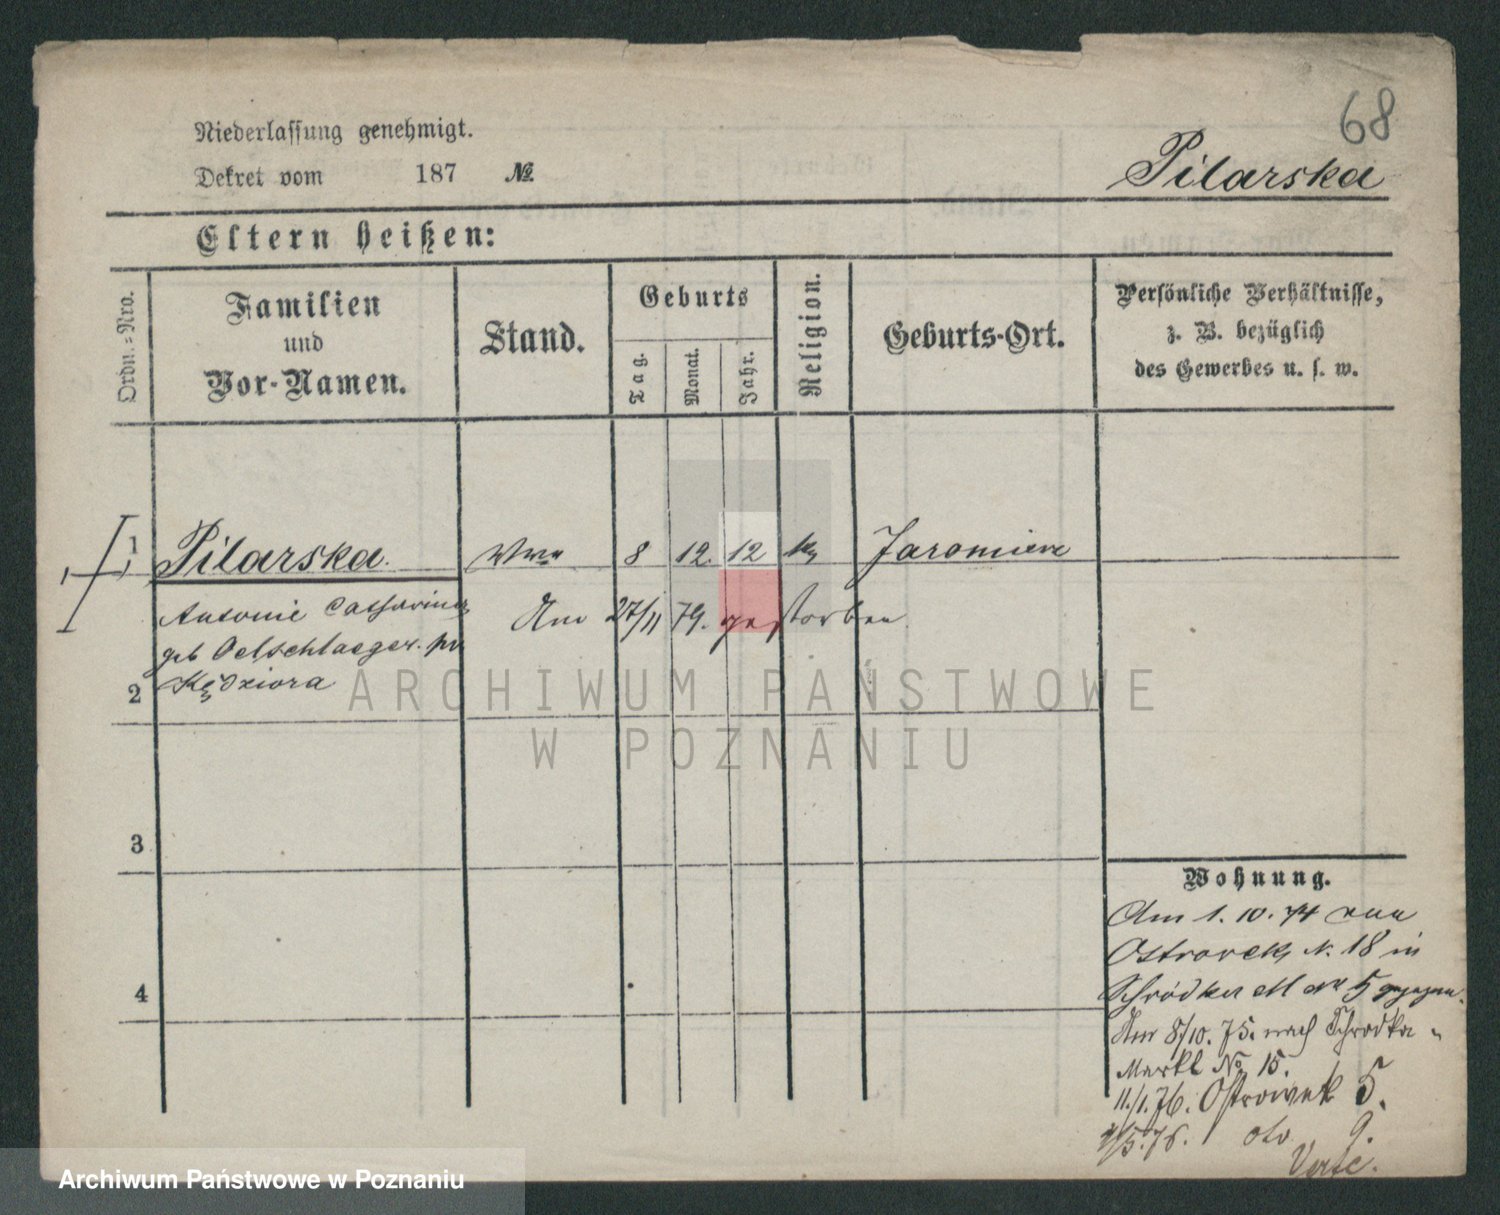 68
Niederlassung genehmigt.
Dekret vom 187 №.
Pilarska
Eltern heißen:
Ordn.-Nro.
Familien
und
Vor-Namen.
Stand.
Geburts
Tag.
Monat.
Jahr.
Religion.
Geburts-Ort.
Persönliche Verhältnisse,
z. B. bezüglich
des Gewerbes u. s. w.
1 Pilarska. Wwe 8 12. 12 k Jaromierz
Antonie Catharina Am 27/11 79. gestorben.
geb Oelschlaeger.
2 Kędziora
ARCHIWUM PAŃSTWOWE
W POZNANIU
3
4
Wohnung.
Am 1. 10. 74 von
Ostrowek N. 18 in
Schrodka M 5 gezogen.
Am 8/10. 75. nach Schrodka
Markt No 15.
11./1. 76. Ostrowek 5.
/5. 76. dto 9.
Verte.
Archiwum Państwowe w Poznaniu